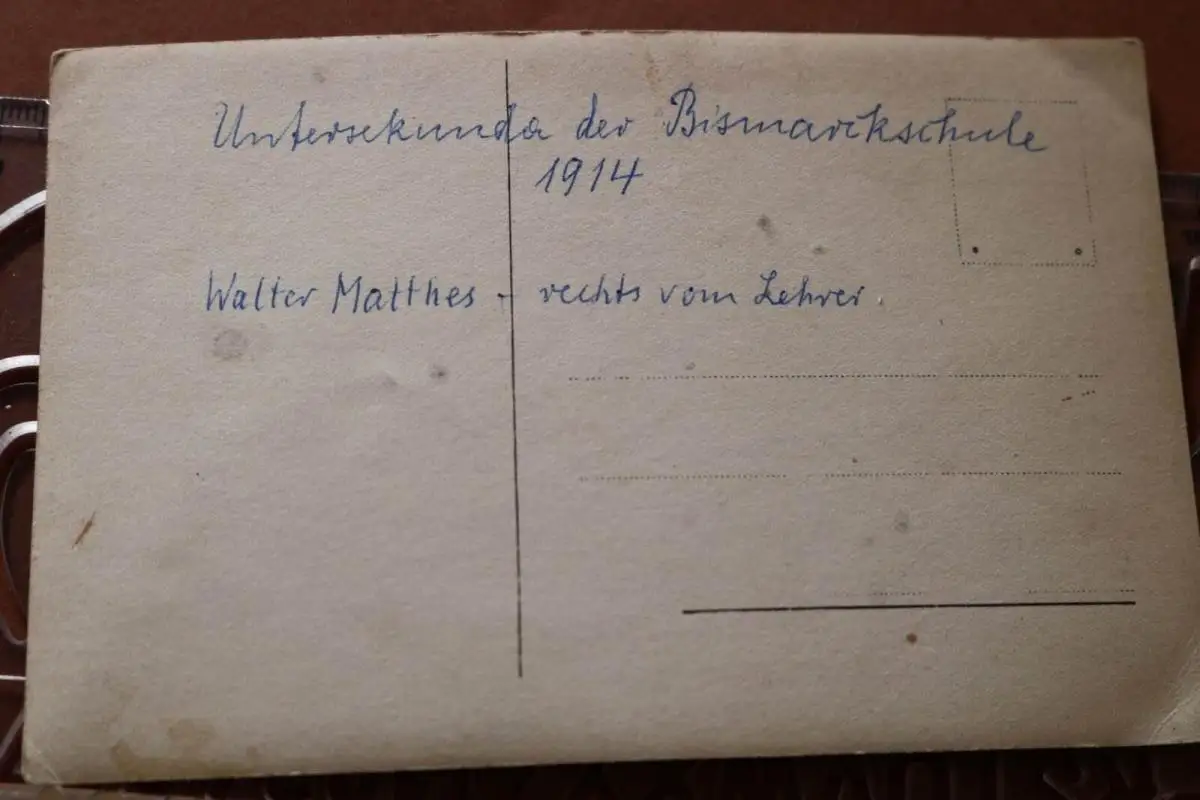 Untersekunda der Bismarckschule
1914
Walter Matthes - rechts vom Lehrer.